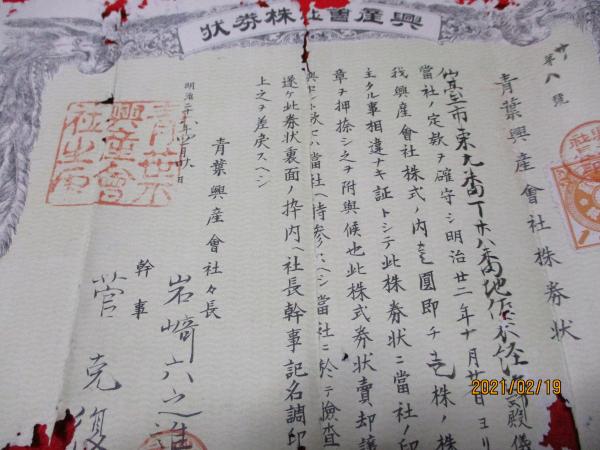 興産會社株券状
第八號
青葉興産會社株券状
仙臺市東九番丁廿八番地佐 郎殿儀
當社ノ定款ヲ確守シ明治廿二年十月廿日ヨリ
我興産會社株式ノ内壱圓即チ壱株ノ株
主タル事相違ナキ証トシテ此株券状ニ當社ノ印
章ヲ押捺シ之ヲ附與候也此株式券状賣却譲
與セント欲セハ當社ヘ持参スヘシ當社ニ於テ檢査
遂ケ此券状裏面ノ枠内ヘ社長幹事記名調印
上之ヲ差戻スヘシ
明治二十
青葉興産會社々長
岩﨑六之進
幹事
菅克復
青葉興産會社之印
2021/02/19